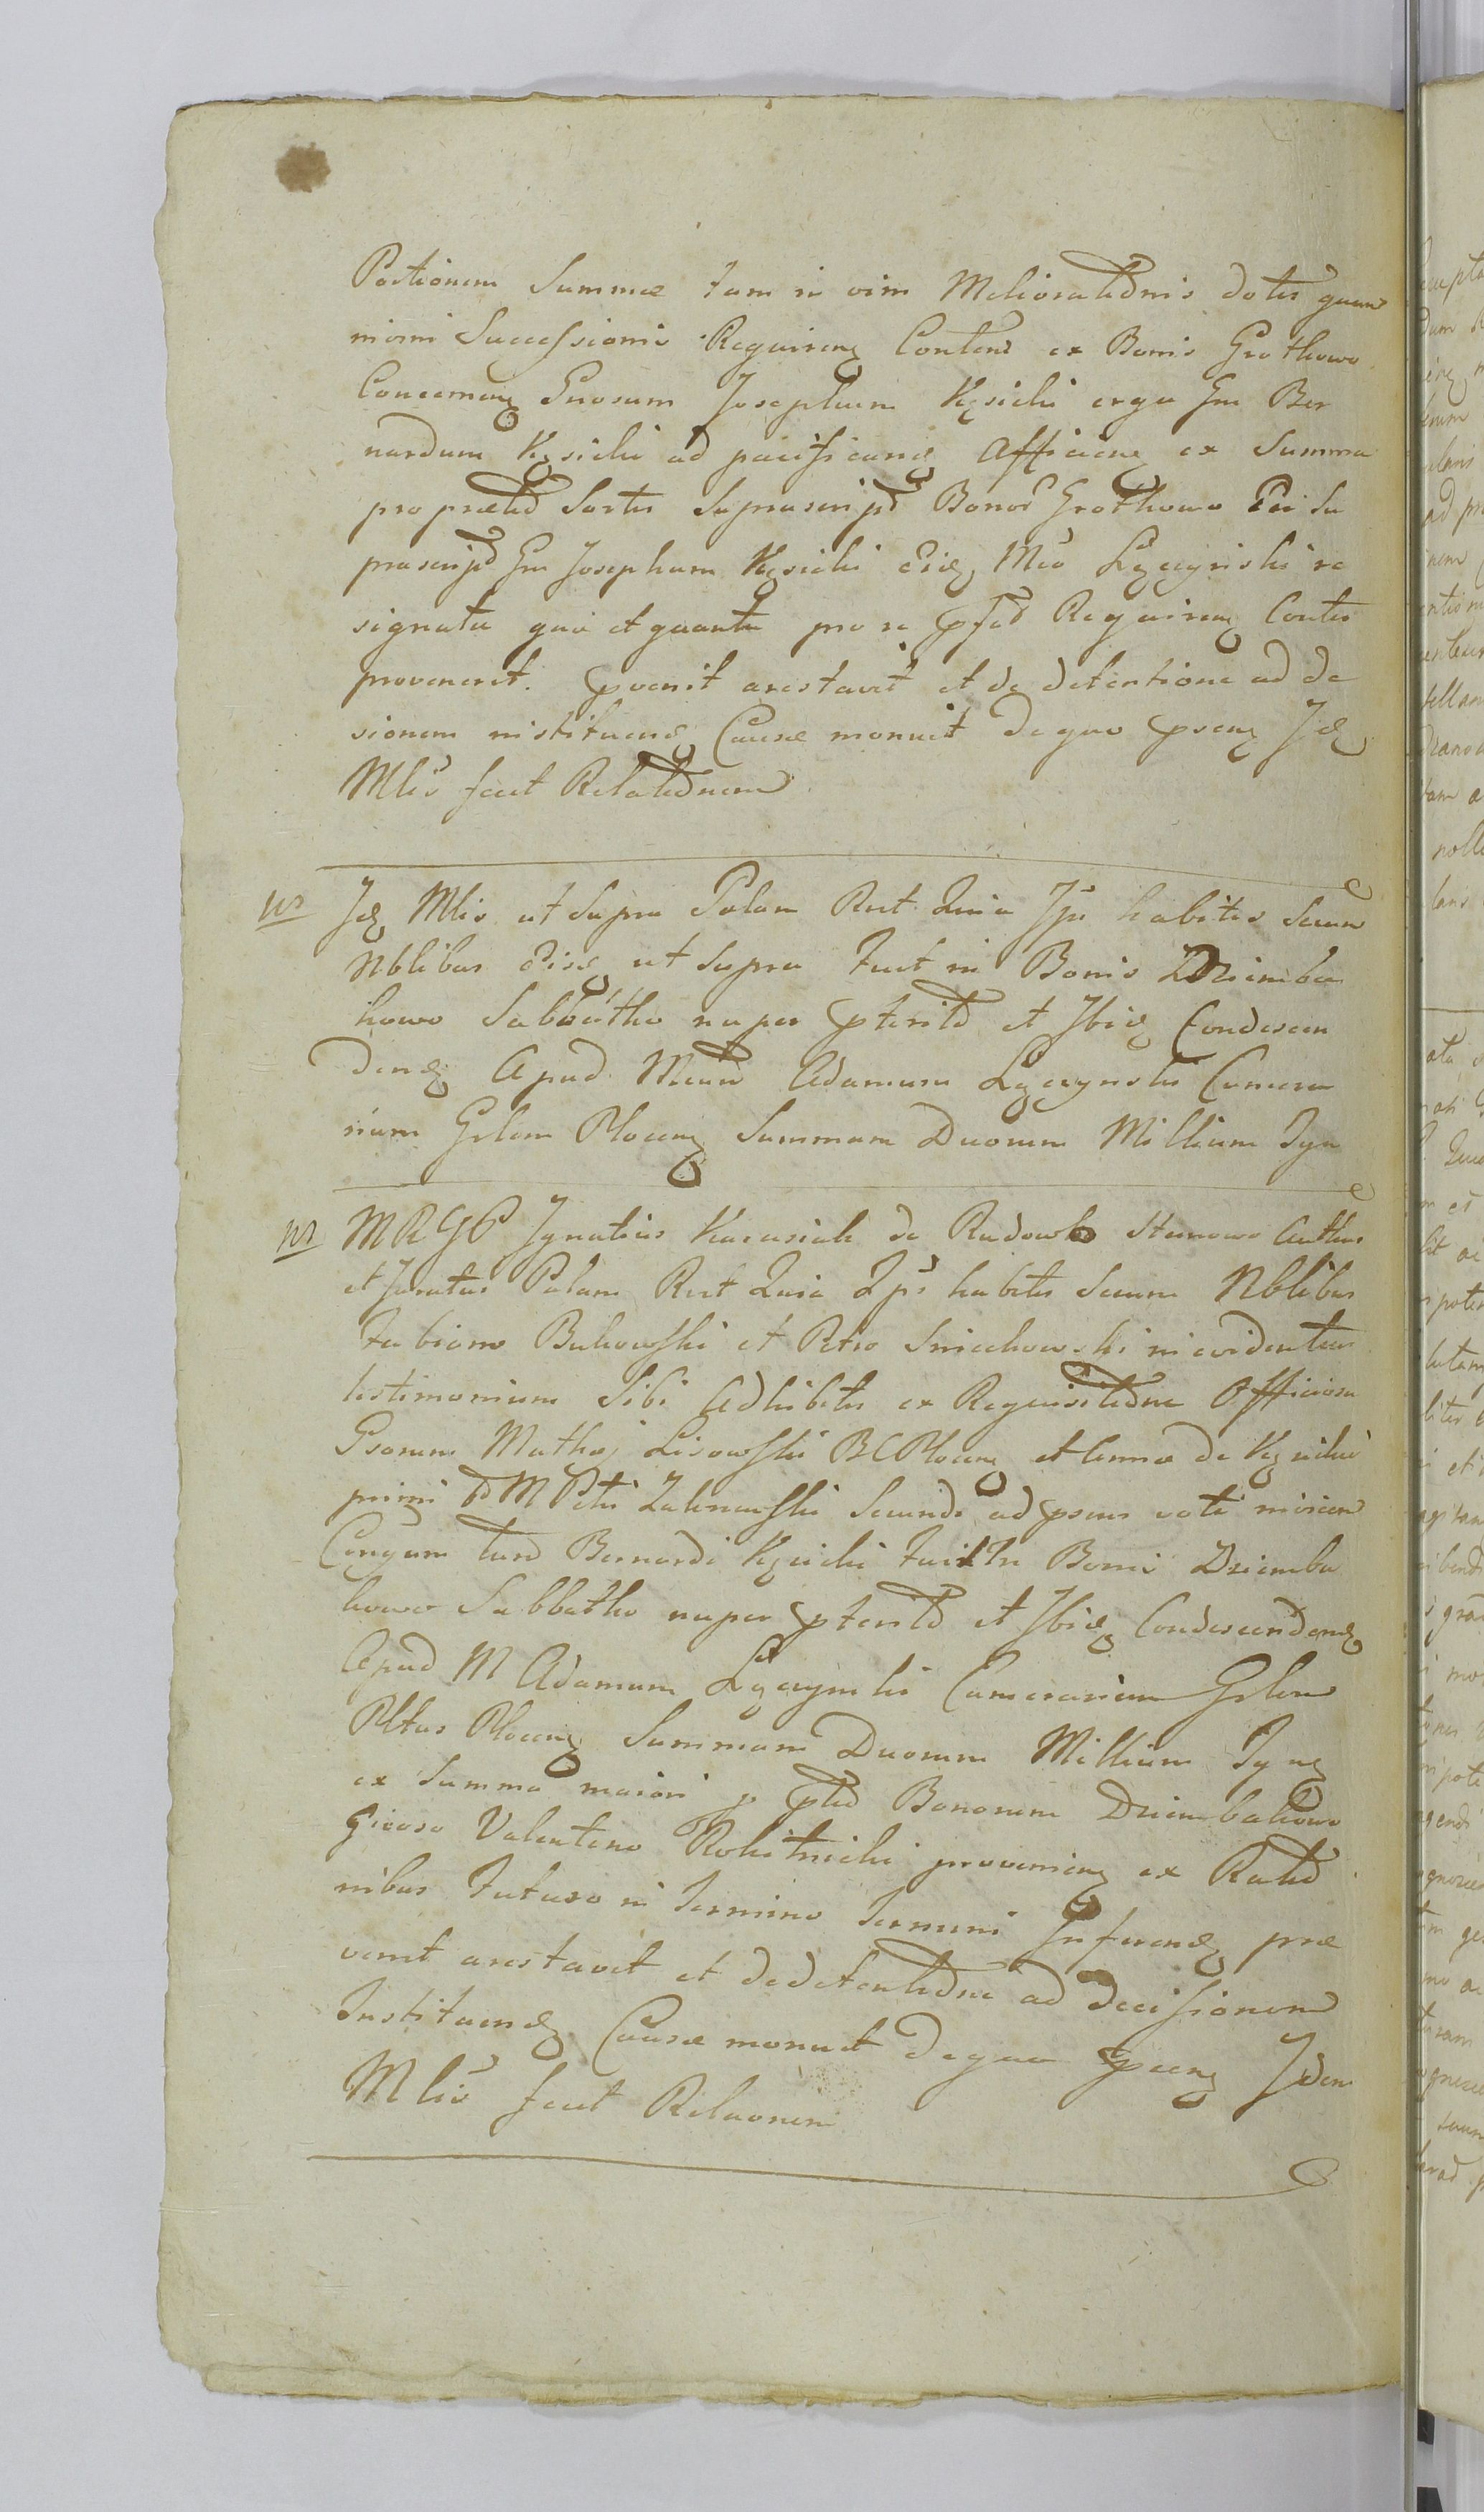 Portionem Summæ tam in vim Melioratõnis dotis quam
nomi Successionis Requireng Conten ex Bonis Grothowo
Concerneng Gnosum Josephum Kęsicki erga Gm Ber
nardum Kęsicki ad pacificand Afficieng ex Summa
pro prætio Sortis Suprascript Bonor Grothowo Per Su
prascript Gm Josephum Kęsicki Eid Mco Łączynski re
signata qua et quanta pro re psad Requireng Contin
provenerit. pvenit arestavit et de detentione ad de
sionem instituend Causæ monuit de quo pseng Id
Mlis fecit Relatõnem
Id Mlis ut Supra Palam Rect Quia Ips habitis Secum
Nblibus Eisd ut Supra fuit in Bonis Dziemba
kowo Sabbatho nuper pterito et Ibid Condescen
dend Apud Mcum Adamum Łączynski Camera
rium Grlem Ploceng Summam Duorum Millium Tyn
MRGP Ignatius Karasiak de Radowko Stanowo Authus
et Juratus Palam Rect Quia Ips habitis Secum Nblibus
Fabiano Bukowski et Petro Smiechowski in evidentius
testimonium Sibi Adhibitis ex Requisitõne Officiosa
Gsorum Mathei Lisowski BC Ploceng et Annæ de Kęsickie
primi M Petri Zalewski Secundi ad psens voti
Conjugum Bernardi Kęsicki fuit In Bonis Dziemba
kowo Sabbatho nuper pterito et Ibid Condescendend
Apud M Adamum Łączynski Camerarium Grlem
Pltus Ploceng Summam Duorum Millium Tyng
ex Summa maiori p ptio Bonorum Dziembakowo
Gicoso Valentino Rokitnicki provenieng ex Ratio
nibus Futuro in Termino Termini Inferend præ
venit arestavit et de detentõne ad decisionem
Instituend Causæ monuit de quo pseng Idem
Mlis fecit Relaonem